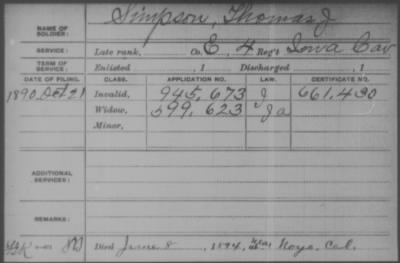 NAME OF SOLDIER: Simpson, Thomas J
SERVICE: Late rank, Co. E, 4 Reg't Iowa Cav
TERM OF SERVICE: Enlisted , 1 Discharged , 1
DATE OF FILING. CLASS. APPLICATION NO. LAW. CERTIFICATE NO.
1890 Oct 21 Invalid, 945,673 J 661,430
Widow, 599,623 Ja
Minor,
ADDITIONAL SERVICES:
REMARKS:
Died June 8, 1894, Noyo, Cal.